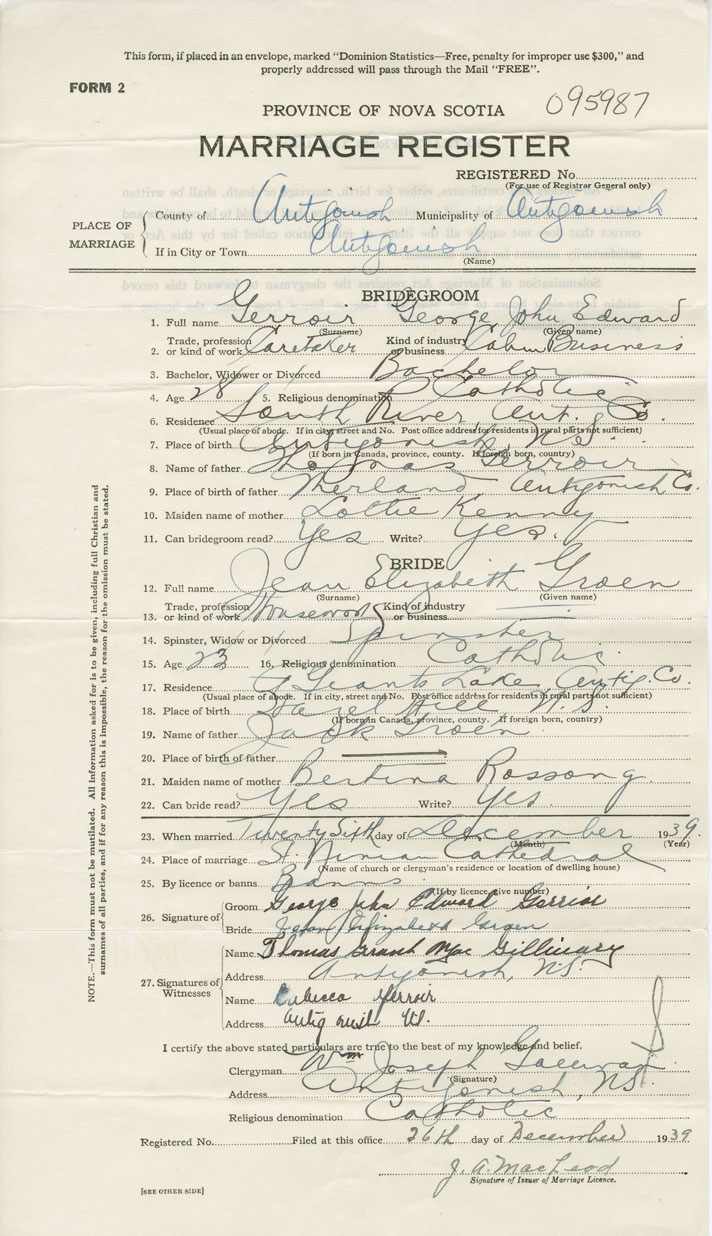 This form, if placed in an envelope, marked "Dominion Statistics—Free, penalty for improper use $300," and
properly addressed will pass through the Mail "FREE".
FORM 2
PROVINCE OF NOVA SCOTIA 095987
MARRIAGE REGISTER
REGISTERED No.
(For use of Registrar General only)
PLACE OF MARRIAGE
County of Antigonish Municipality of Antigonish
If in City or Town Antigonish
(Name)
BRIDEGROOM
1. Full name Gerroir George John Edward
(Surname) (Given name)
2. Trade, profession or kind of work Caretaker Kind of industry or business Cabin Business
3. Bachelor, Widower or Divorced Bachelor
4. Age 28 5. Religious denomination Catholic
6. Residence South River, Ant. Co.
(Usual place of abode. If in city, street and No. Post office address for residents in rural parts not sufficient)
7. Place of birth Antigonish, N.S.
(If born in Canada, province, county. If foreign born, country)
8. Name of father Thomas Gerroir
9. Place of birth of father Merland, Antigonish Co.
10. Maiden name of mother Lottie Kenny
11. Can bridegroom read? Yes Write? Yes.
BRIDE
12. Full name Jean Elizabeth Groen
(Surname) (Given name)
13. Trade, profession or kind of work Housework Kind of industry or business —
14. Spinster, Widow or Divorced Spinster
15. Age 23 16. Religious denomination Catholic
17. Residence Giants Lake, Antig. Co.
(Usual place of abode. If in city, street and No. Post office address for residents in rural parts not sufficient)
18. Place of birth Hazel Hill N.S.
(If born in Canada, province, county. If foreign born, country)
19. Name of father Jack Groen
20. Place of birth of father —
21. Maiden name of mother Bertina Rossong
22. Can bride read? Yes Write? Yes.
23. When married Twenty Sixth day of December 1939.
(Month) (Year)
24. Place of marriage St. Ninian Cathedral
(Name of church or clergyman's residence or location of dwelling house)
25. By licence or banns Banns
(If by licence, give number)
26. Signature of
Groom George John Edward Gerrior
Bride Jean Elizabeth
27. Signatures of Witnesses
Name Thomas Grant Mac Gillivary
Address Antigonish, N.S.
Name Rebecca Gerroir
Address Antigonish
I certify the above stated particulars are true to the best of my knowledge and belief.
Clergyman Wm Joseph Gallivan
(Signature)
Address Antigonish, N.S.
Religious denomination Catholic
Registered No. Filed at this office 26th day of December 1939
J. A. MacLeod
Signature of Issuer of Marriage Licence.
[SEE OTHER SIDE]
NOTE.—This form must not be mutilated. All Information asked for is to be given, including full Christian and
surnames of all parties, and if for any reason this is impossible, the reason for the omission must be stated.